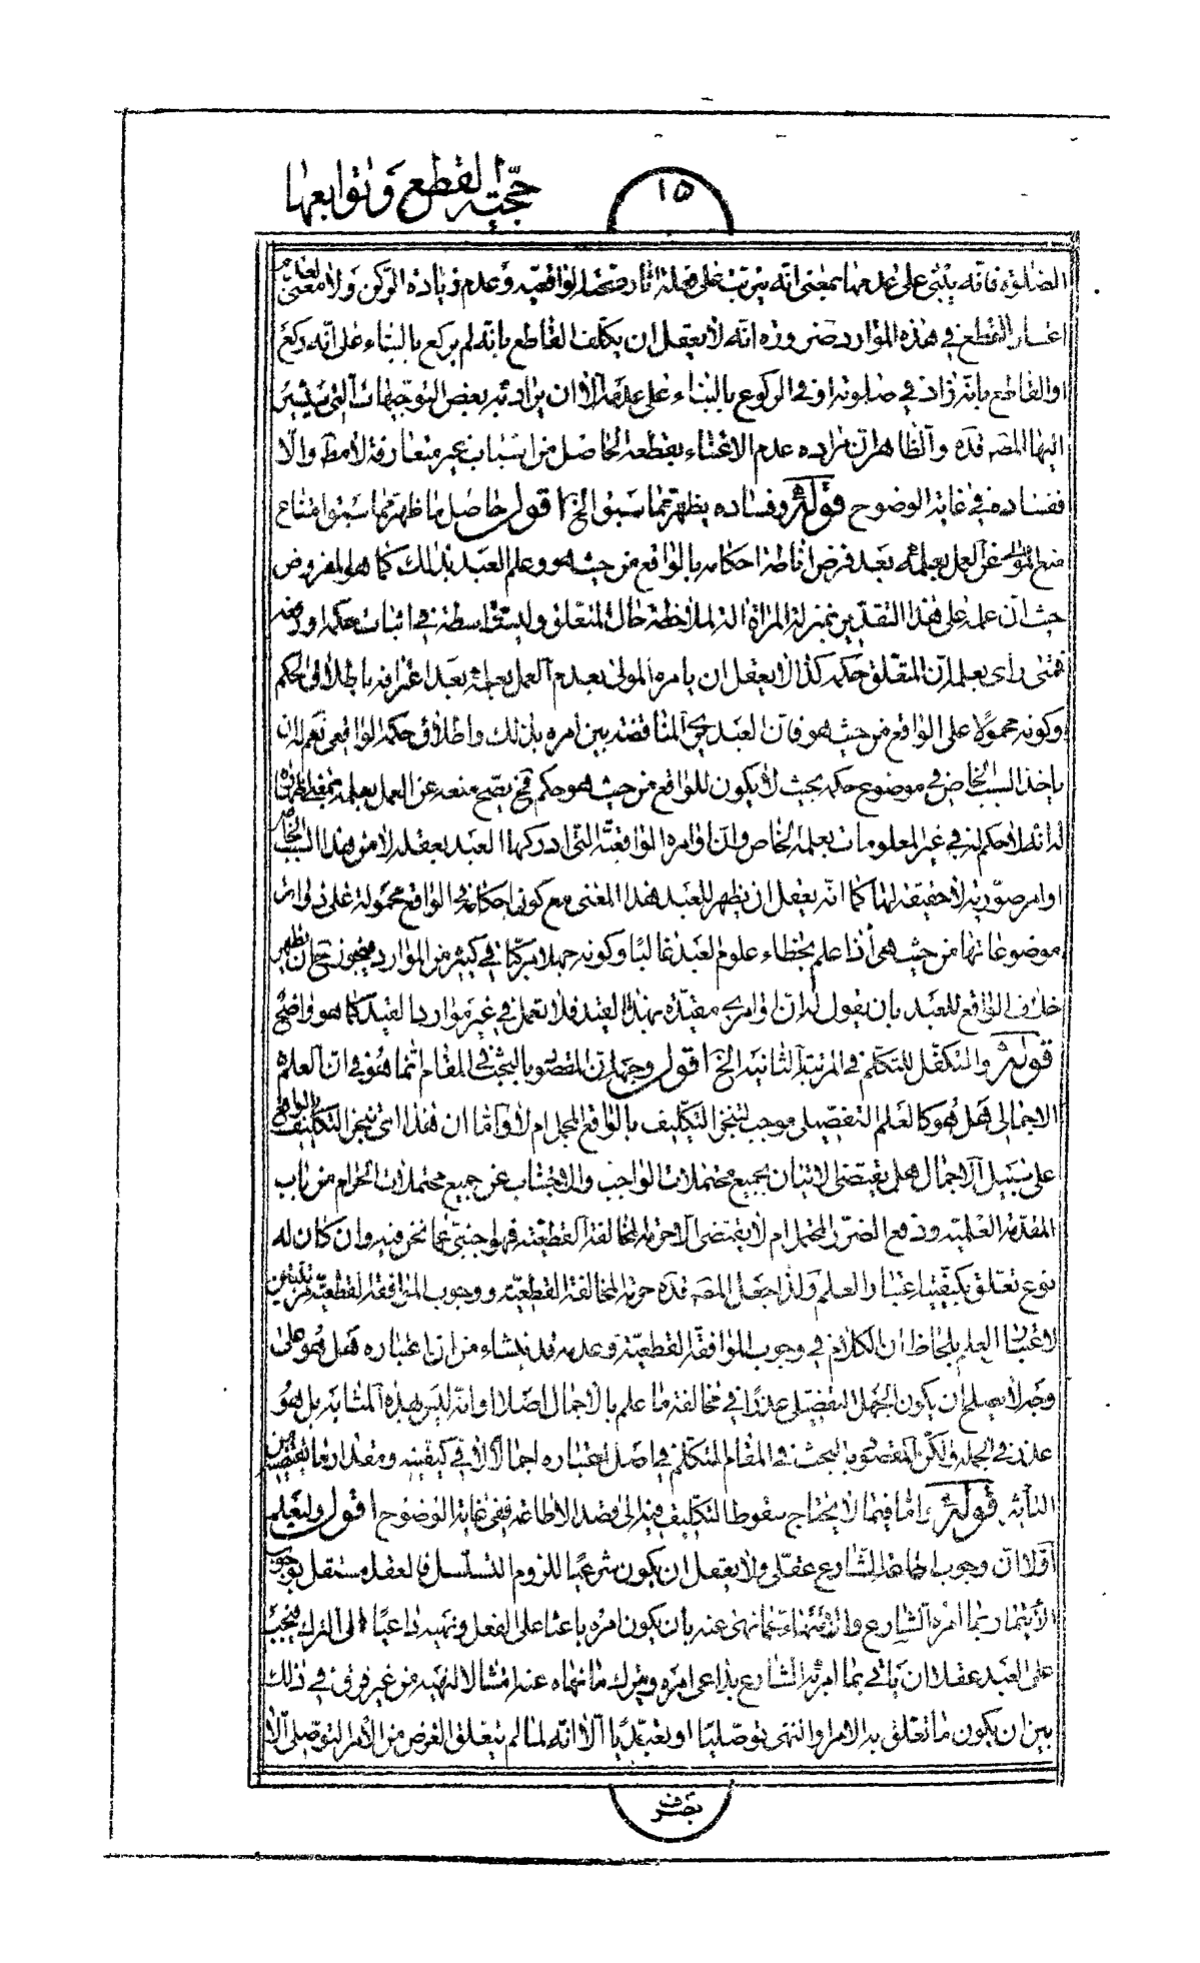 ١٥
حجّية القطع وتوابعها
الصّلوة فانّه يبنى على عدمها بمعنى انّه يترتب على فعله اثار صحّته الواقعيّة وعدم زيادة الرّكن ولا معنى لعدم
اعتبار القطع فى هذه الموارد ضرورة انّه لا يعقل ان يكلّف القاطع بانّه لم يركع بالبناء على انّه ركع
او القاطع بانّه زاد فى صلوته او فى الركوع بالبناء على عدمه الّا ان يراد به بعض التوجيهات الّتى يشير
اليها المصه قدّه والظاهر انّ مراده عدم الاعتناء بقطعه الحاصل من اسباب غير متعارفة لامطه والّا
ففساده فى غاية الوضوح قوله وفساده يظهر ممّا سبق الخ اقول حاصل ما ظهر ممّا سبق امتناع
منع المولى عن العمل بعلمه بعد فرض اناطة احكامه بالواقع من حيث هو وعلم العبد بذلك كما هو المفروض
حيث انّ علمه على هذا التقدير بمنزلة المرآة الة لملاحظة حال المتعلّق وليس واسطة فى اثبات حكمه او رفعه
فمتى رأى بعلمه انّ المتعلّق حكمه كذا لا يعقل ان يامره المولى بعدم العمل بعلمه بعد اعترافه باطلاق الحكم
وكونه محمولا على الواقع من حيث هو فانّ العبد يرى المناقضة بين امره بذلك واطلاق حكمه الواقعى نعم له ان
ياخذ السبب الخاصّ فى موضوع حكمه بحيث لا يكون للواقع من حيث هو حكم فح يصحّ منعه عن العمل بعلمه بمعنى اظهاره
له انّه لا حكم له فى غير المعلومات بعلمه الخاص وانّ اوامره الواقعيّة الّتى ادركها العبد بعقله لا من هذا السبب الخاصّ
اوامر صوريّة لا حقيقة لها كما انّه يعقل ان يظهر للعبد هذا المعنى مع كون احكامه فى الواقع محمولة على ذوات
موضوعاتها من حيث هى اذا علم بخطاء علوم العبد غالبا وكونه جهلا مركّبا فى كثير من الموارد فيجوز ح ان يظهر
خلاف الواقع للعبد بان يقول له انّ اوامرى مقيّدة بهذا القيد فلا تعمل فى غير موارد القيد كما هو واضح
قوله والمتكفّل للتكلّم فى المرتبة الثانية الخ اقول وجهه انّ المقصود بالبحث فى المقام انّما هو فى انّ العلم
الاجمالى هل هو كالعلم التفصيلى موجب لتنجّز التكليف بالواقع المجمل ام لا وامّا ان هذا اى تنجّز التكليف بالواقع
على سبيل الاجمال هل يقتضى الاتيان بجميع محتملات الواجب والاجتناب عن جميع محتملات الحرام من باب
المقدّمة العلميّة ودفع الضرر المحتمل ام لا يقتضى الّا حرمة المخالفة القطعيّة فهو اجنبىّ عمّا نحن فيه وان كان له
نوع تعلّق بكيفيّة اعتبار العلم ولذا جعل المصه قدّه حرمة المخالفة القطعيّة ووجوب الموافقة القطعيّة مرتبتين
لاعتبار العلم بلحاظ انّ الكلام فى وجوب الموافقة القطعيّة وعدمه قد ينشاء من انّ اعتباره هل هو على
وجه لا يصلح ان يكون الجهل التفصيلى عذرا فى مخالفة ما علم بالاجمال اصلا او انّه ليس بهذه المثابة بل هو
عذر فى الجملة ولكن المقصود بالبحث فى المقام التكلّم فى اصل اعتباره اجمالا لا فى كيفيّته ومقدار ما يقتضيه من
التأثير قوله وامّا فيما لا يحتاج سقوط التكليف فيه الى قصد الاطاعة ففى غاية الوضوح اقول وليعلم
اوّلا انّ وجوب اطاعة الشارع عقلى ولا يعقل ان يكون شرعيّا للزوم التسلسل فالعقل مستقل بوجوب
الايتمار بما امره الشارع والانتهاء عمّا نهى عنه بان يكون امره باعثا على الفعل ونهيه داعيا الى الترك فيجب
على العبد عقلا ان ياتى بما امر به الشارع بداعى امره ويترك ما نهاه عنه امتثالا لنهيه من غير فرق فى ذلك
بين ان يكون ما تعلّق به الامر والنهى توصّليّا او تعبّديّا الّا انّه لمّا لم يتعلّق الغرض من الامر التوصّلى الّا
بصرف